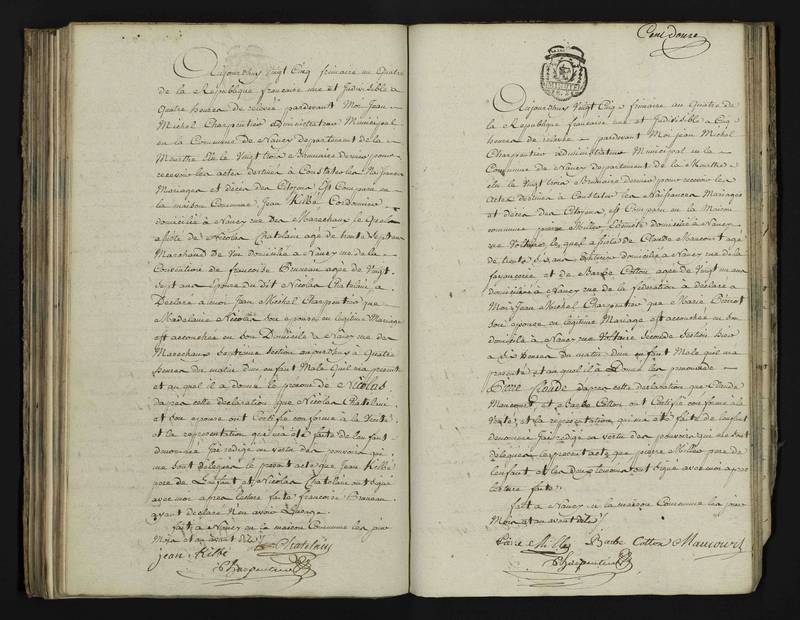 Aujourd'huy Vingt Cinq frimaire an Quatre
de la République française une et Indivisible à
Quatre heures de relevée pardevant Moi Jean
Michel Charpentier Administrateur Municipal
en la Commune de Nancy departement de la
Meurthe Elu le Vingt trois Brumaire dernier pour
recevoir les actes destinés à Constater les Naissances
Mariages et décès des Citoyens Est Comparu en
la maison Commune Jean Kilbé Cordonnier
domicilié à Nancy rue des Marechaux le quel
assisté de Nicolas Chatelain agé de trente sept ans
Marchand de Vin domicilié à Nancy rue de la
Convention de francoise Bruneau agée de Vingt
Sept ans épouse du dit Nicolas Chatelain a
Déclaré à moi Jean Michel Charpentier que
Madelaine Nicolas son epouse en légitime Mariage
est accouchée en son Domicile à Nancy rue des
Marechaux Septieme Section aujourd'huy à Quatre
heures du matin d'un enfant Male qu'il m'a présenté
et au quel il a donné le prénom de Nicolas.
d'apres cette déclaration que Nicolas Chatelain
et Son épouse ont Certifié conforme à la Vérité
et la représentation qui m'a été faite de l'enfant
denommé j'ai rédigé en vertu des pouvoirs qui
me sont délégués le présent acte que Jean Kilbé
pere de l'enfant et Nicolas Chatelain ont signé
avec moi apres lecture faite francoise Bruneau
ayant declaré Non avoir l'usage
fait à Nancy en la maison Commune les jour
Mois et an avant dits
jean Kilbé Chatelain
Charpentier
Cent douze
Aujourd'huy Vingt Cinq frimaire an Quatre de
la République française une et Indivisible à Cinq
heures de relevée pardevant Moi Jean Michel
Charpentier administrateur Municipal en la
Commune de Nancy departement de la Meurthe
elu le Vingt trois Brumaire Dernier pour recevoir les
Actes destinés à Constater les Naissances Mariages
et décès des Citoyens est Comparu en la Maison
commune pierre domicilié à Nancy
rue Voltaire le quel assisté de Claude Maucourt agé
de trente six ans domicilié à Nancy rue de la
fayancerie et de Barbe Cotton agée de Vingt un ans
domiciliée à Nancy rue de la fédération à déclaré à
Moi Jean Michel Charpentier que Marie
son épouse en légitime Mariage est accouchée en son
domicile à Nancy rue Voltaire Seconde Section hier
à Six heures du matin d'un enfant Male qu'il m'a
présenté et au quel il a Donné les prénoms de
Pierre Claude d'apres cette déclaration que Claude
Maucourt et Barbe Cotton ont Certifié conforme à la
Vérité et la représentation qui m'a été faite de l'enfant
denommé j'ai rédigé en vertu des pouvoirs qui me sont
délégués le present acte que pierre pere de
l'enfant et les deux temoins ont signé avec moi apres
lecture faite
fait à Nancy en la maison Commune les jour
Mois et an avant dits
Barbe Cotton Maucourt
Charpentier